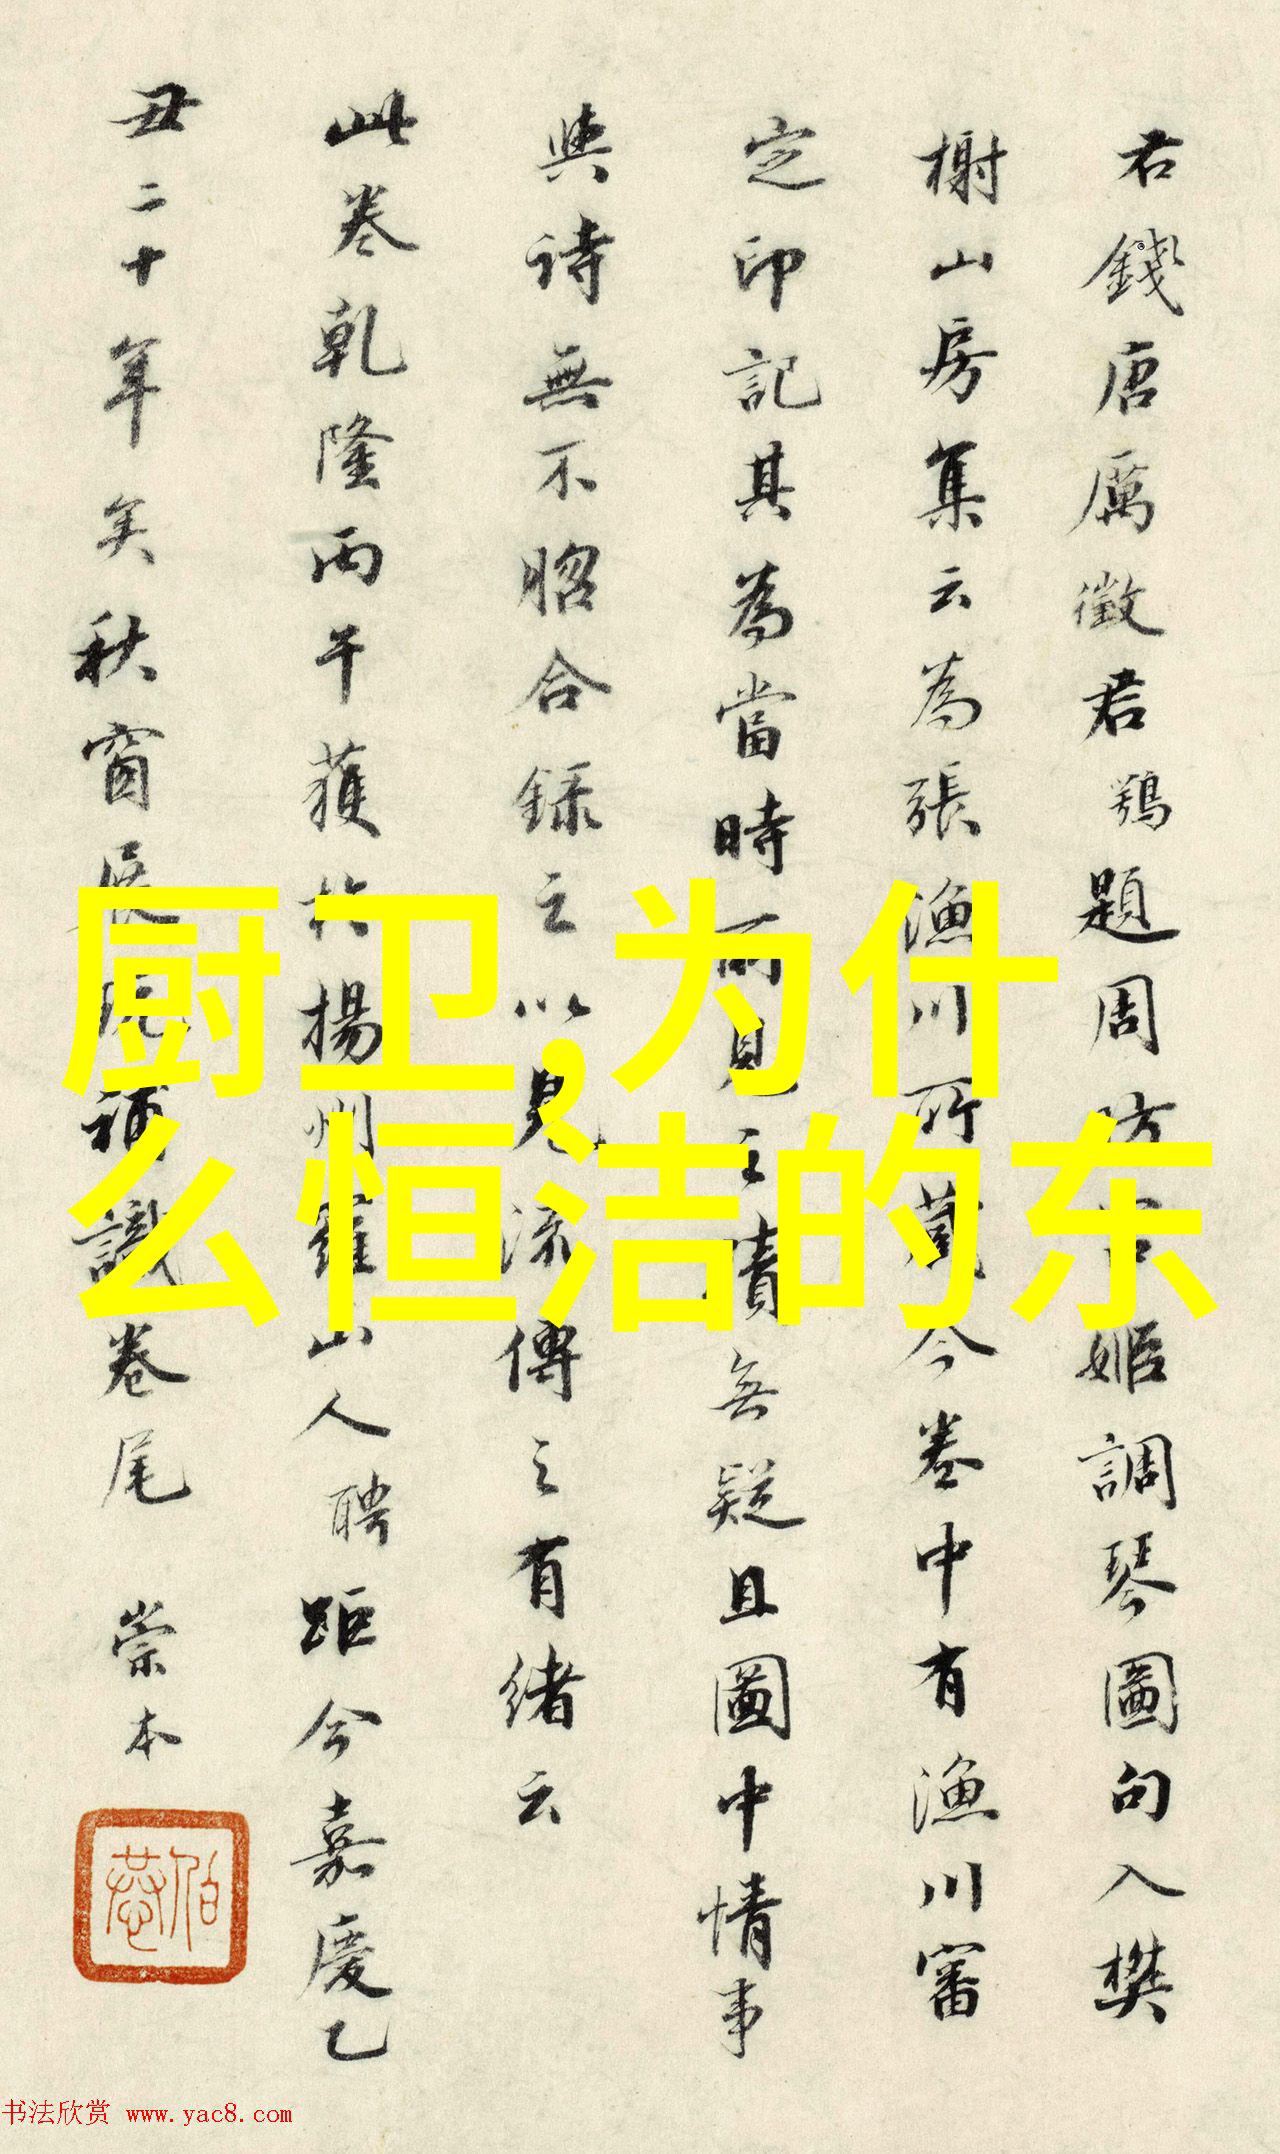 君錢唐厲徵君鶚題周昉宫姬調琴圖句入樊
榭山房集云為張漁川所藏今卷中有漁川審
定印記其為當時所見之蹟無疑且圖中情事
與詩無不昭合録之以見流傳之有緒云
此卷乾隆丙午獲於揚州羅山人聘距今嘉慶乙
丑二十年矣秋窗展玩補識卷尾 崇本
厨卫,为什
么恒洁的东
书法欣赏 www.yac8.com